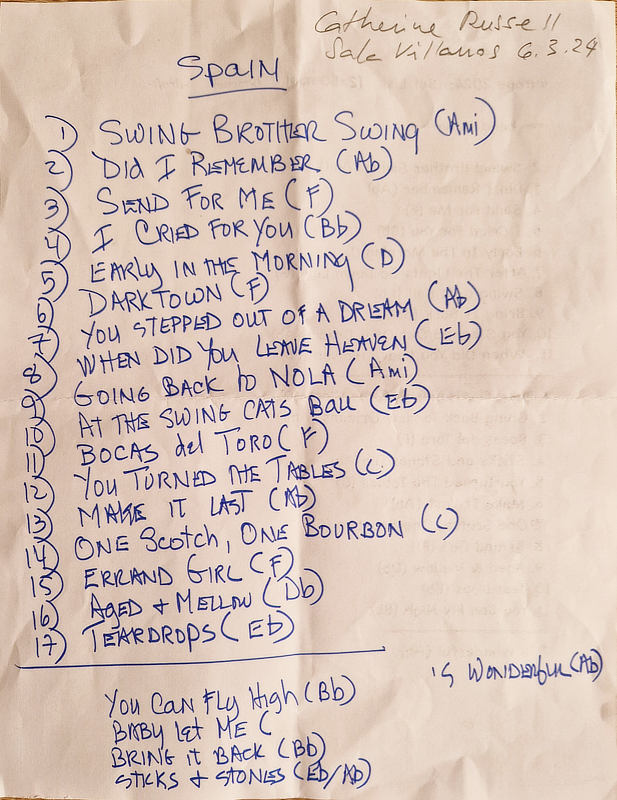 Catherine Russell
Sala Villanos 6.3.24
SPAIN
1) SWING BROTHER SWING (Ami)
2) Did I REMEMBER (Ab)
3) SEND FOR ME (F)
4) I CRIED FOR YOU (Bb)
5) EARLY IN THE MORNING (D)
6) DARKTOWN (F)
7) YOU STEPPED OUT OF A DREAM (Ab)
8) WHEN DID YOU LEAVE HEAVEN (Eb)
9) GOING BACK to NOLA (Ami)
10) AT THE SWING CATS BALL (Eb)
11) BOCAS del TORO (F)
12) YOU TURNED THE TABLES (C)
13) MAKE IT LAST (Ab)
14) ONE Scotch, ONE BOURBON (C)
15) ERRAND GIRL (F)
16) AGED + MELLOW (Db)
17) TEARDROPS (Eb)
'S WONDERFUL (Ab)
YOU CAN FLY HIGH (Bb)
BABY LET ME (
BRING IT BACK (Bb)
STICKS + STONES (Eb/Ab)